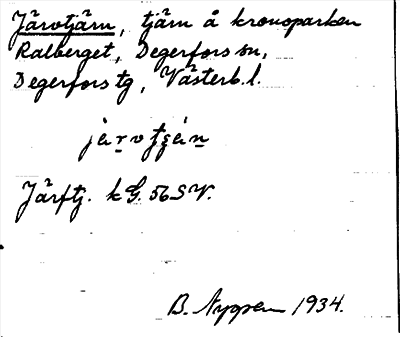 Järvtjärn, tjärn å kronoparken
Ralberget, Degerfors sn,
Degerfors tg, Västerb. l.
Järftj. kG. 56 SV.
B. Nygren 1934.